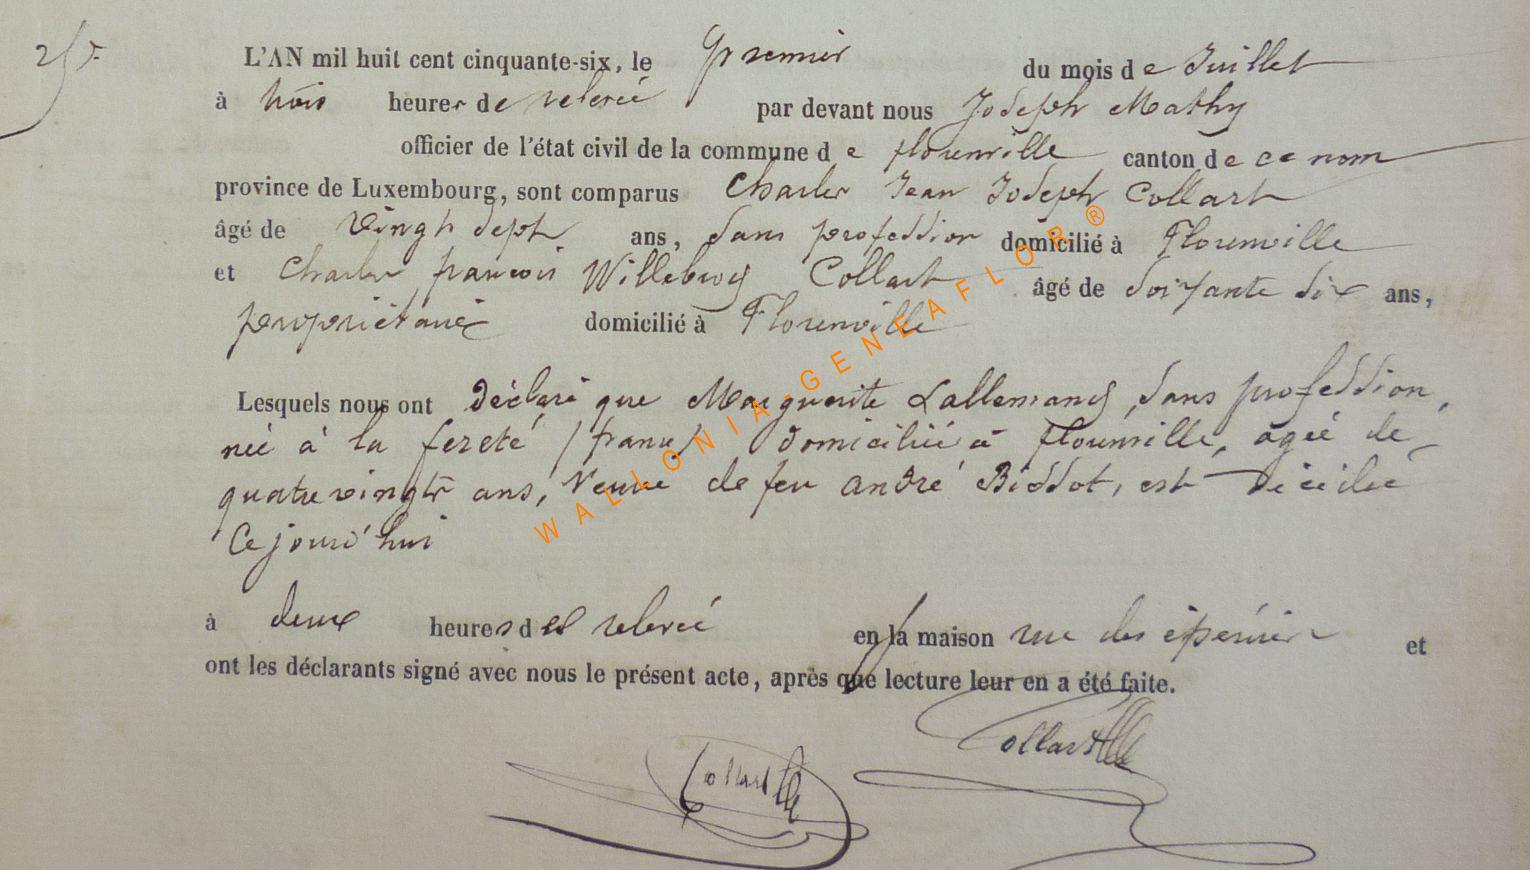 25
L'AN mil huit cent cinquante-six, le premier du mois de Juillet
à trois heures de relevée par devant nous Joseph Mathy
officier de l'état civil de la commune de florenville canton de ce nom
province de Luxembourg, sont comparus Charles Jean Joseph Collart
âgé de vingt sept ans, sans profession domicilié à Florenville
et Charles françois Willebrod Collart âgé de soixante dix ans,
propriétaire domicilié à Florenville
Lesquels nous ont déclaré que Marguerite Lallemand, sans profession,
née à la fereté /france/ domiciliée à florenville, agée de
quatre vingts ans, veuve de feu andré Bissot, est décédée
Ce jourd'hui
à deux heures de relevée en la maison rue des épérires et
ont les déclarants signé avec nous le présent acte, après que lecture leur en a été faite.
Collart
Collart
WALLONIA-GENEAFLOR®